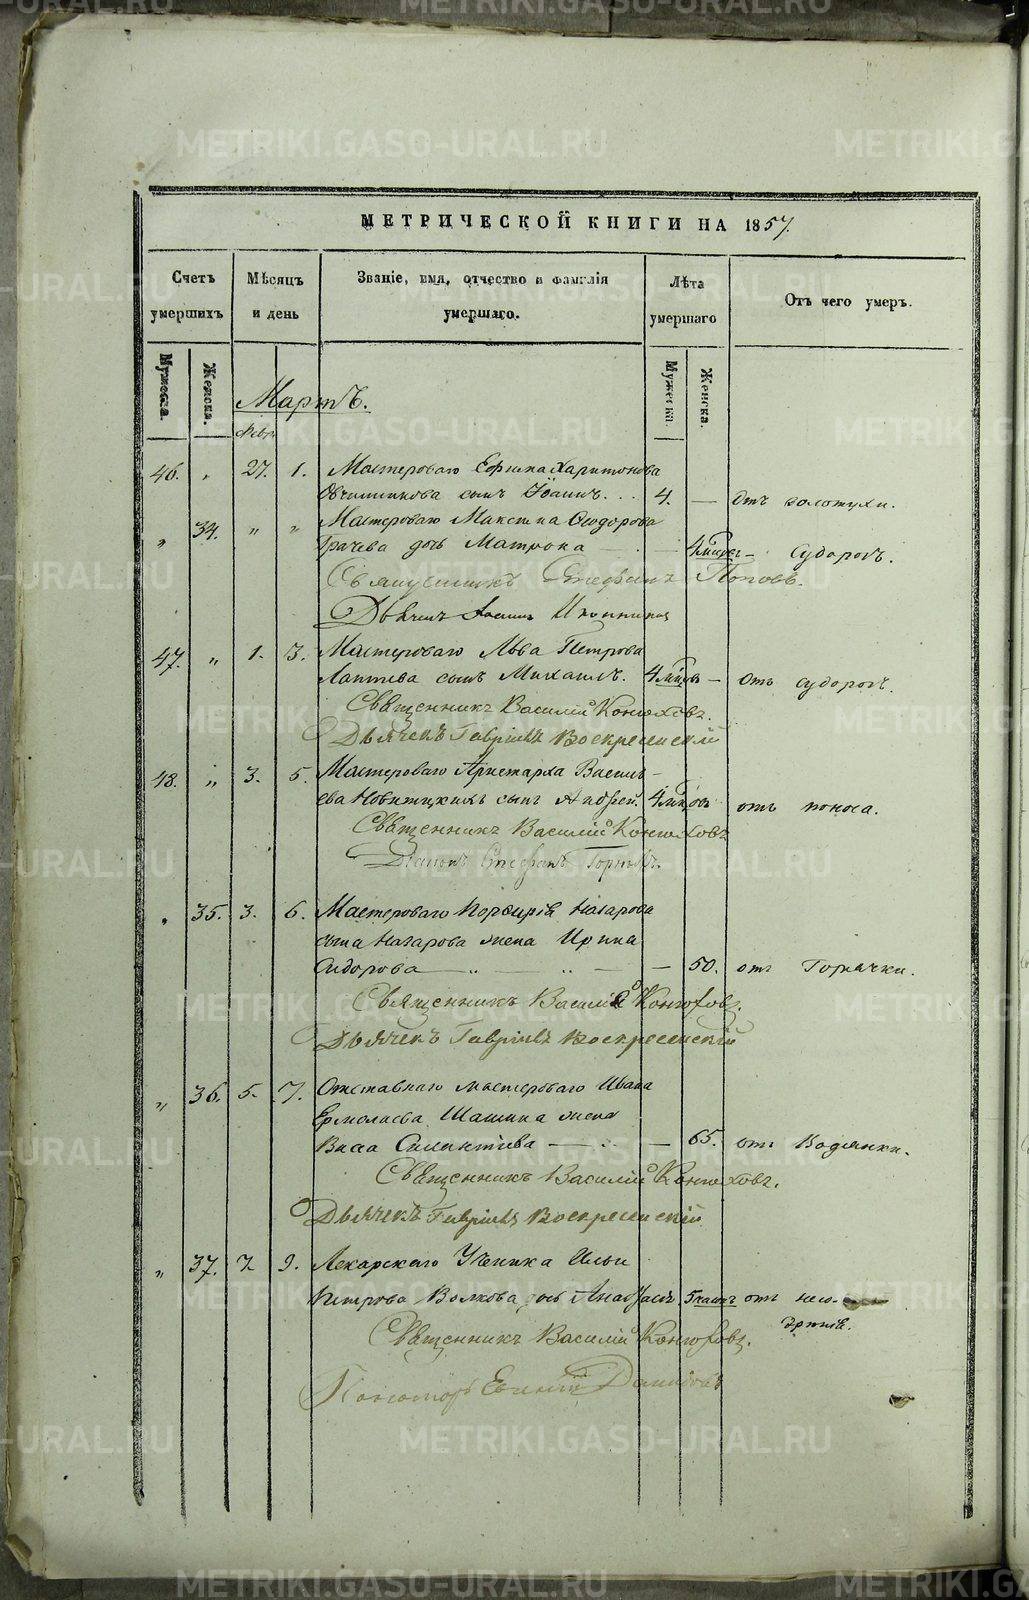 МЕТРИЧЕСКОЙ КНИГИ НА 1857.
Счетъ умершихъ
Мѣсяцъ и день
Званіе, имя, отчество и фамилія умершаго.
Лѣта умершаго
Отъ чего умеръ.
Мужеска.
Женска.
Мужеска.
Женска.
Мартъ.
Февр.
46. „ 27. 1. Мастероваго Ефима Харитонова
Овчинникова сынъ Іоаннъ. . . 4. — отъ золотухи.
„ 34. „ „ Мастероваго Максима Ѳеодорова
Грачева дочь Матрона — — 4 мѣсяц. — судорогъ.
Священникъ Стефанъ Поповъ.
Дьячекъ Іоаннъ Иконников
47. „ 1. 3. Мастероваго Льва Петрова
Лаптева сынъ Михаилъ. 4 мѣсяц. — отъ судорогъ.
Священникъ Василій Конюховъ.
Дьячекъ Гавріилъ Воскресенскій
48. „ 3. 5. Мастероваго Аристарха Василь-
ева Новитцкихъ сынъ Андрей. 4 мѣсяц. отъ поноса.
Священникъ Василій Конюховъ
Діаконъ Стефанъ
„ 35. 3. 6. Мастероваго Порфирія Назарова
сына Назарова жена Ирина
Сидорова — „ — „ — — 50. отъ Горячки.
Священникъ Василій Конюховъ.
Дьячекъ Гавріилъ Воскресенскій
„ 36. 5. 7. Отставнаго мастероваго Ивана
Ермолаева Шашина жена
Васса Силантіева — — — 65. отъ Водянки.
Священникъ Василій Конюховъ.
Дьячекъ Гавріилъ Воскресенскій
„ 37. 7. 9. Лекарскаго Ученика Ильи
Петрова Волкова дочь 5 часовъ отъ
Священникъ Василій Конюховъ.
Пономарь Евгеній